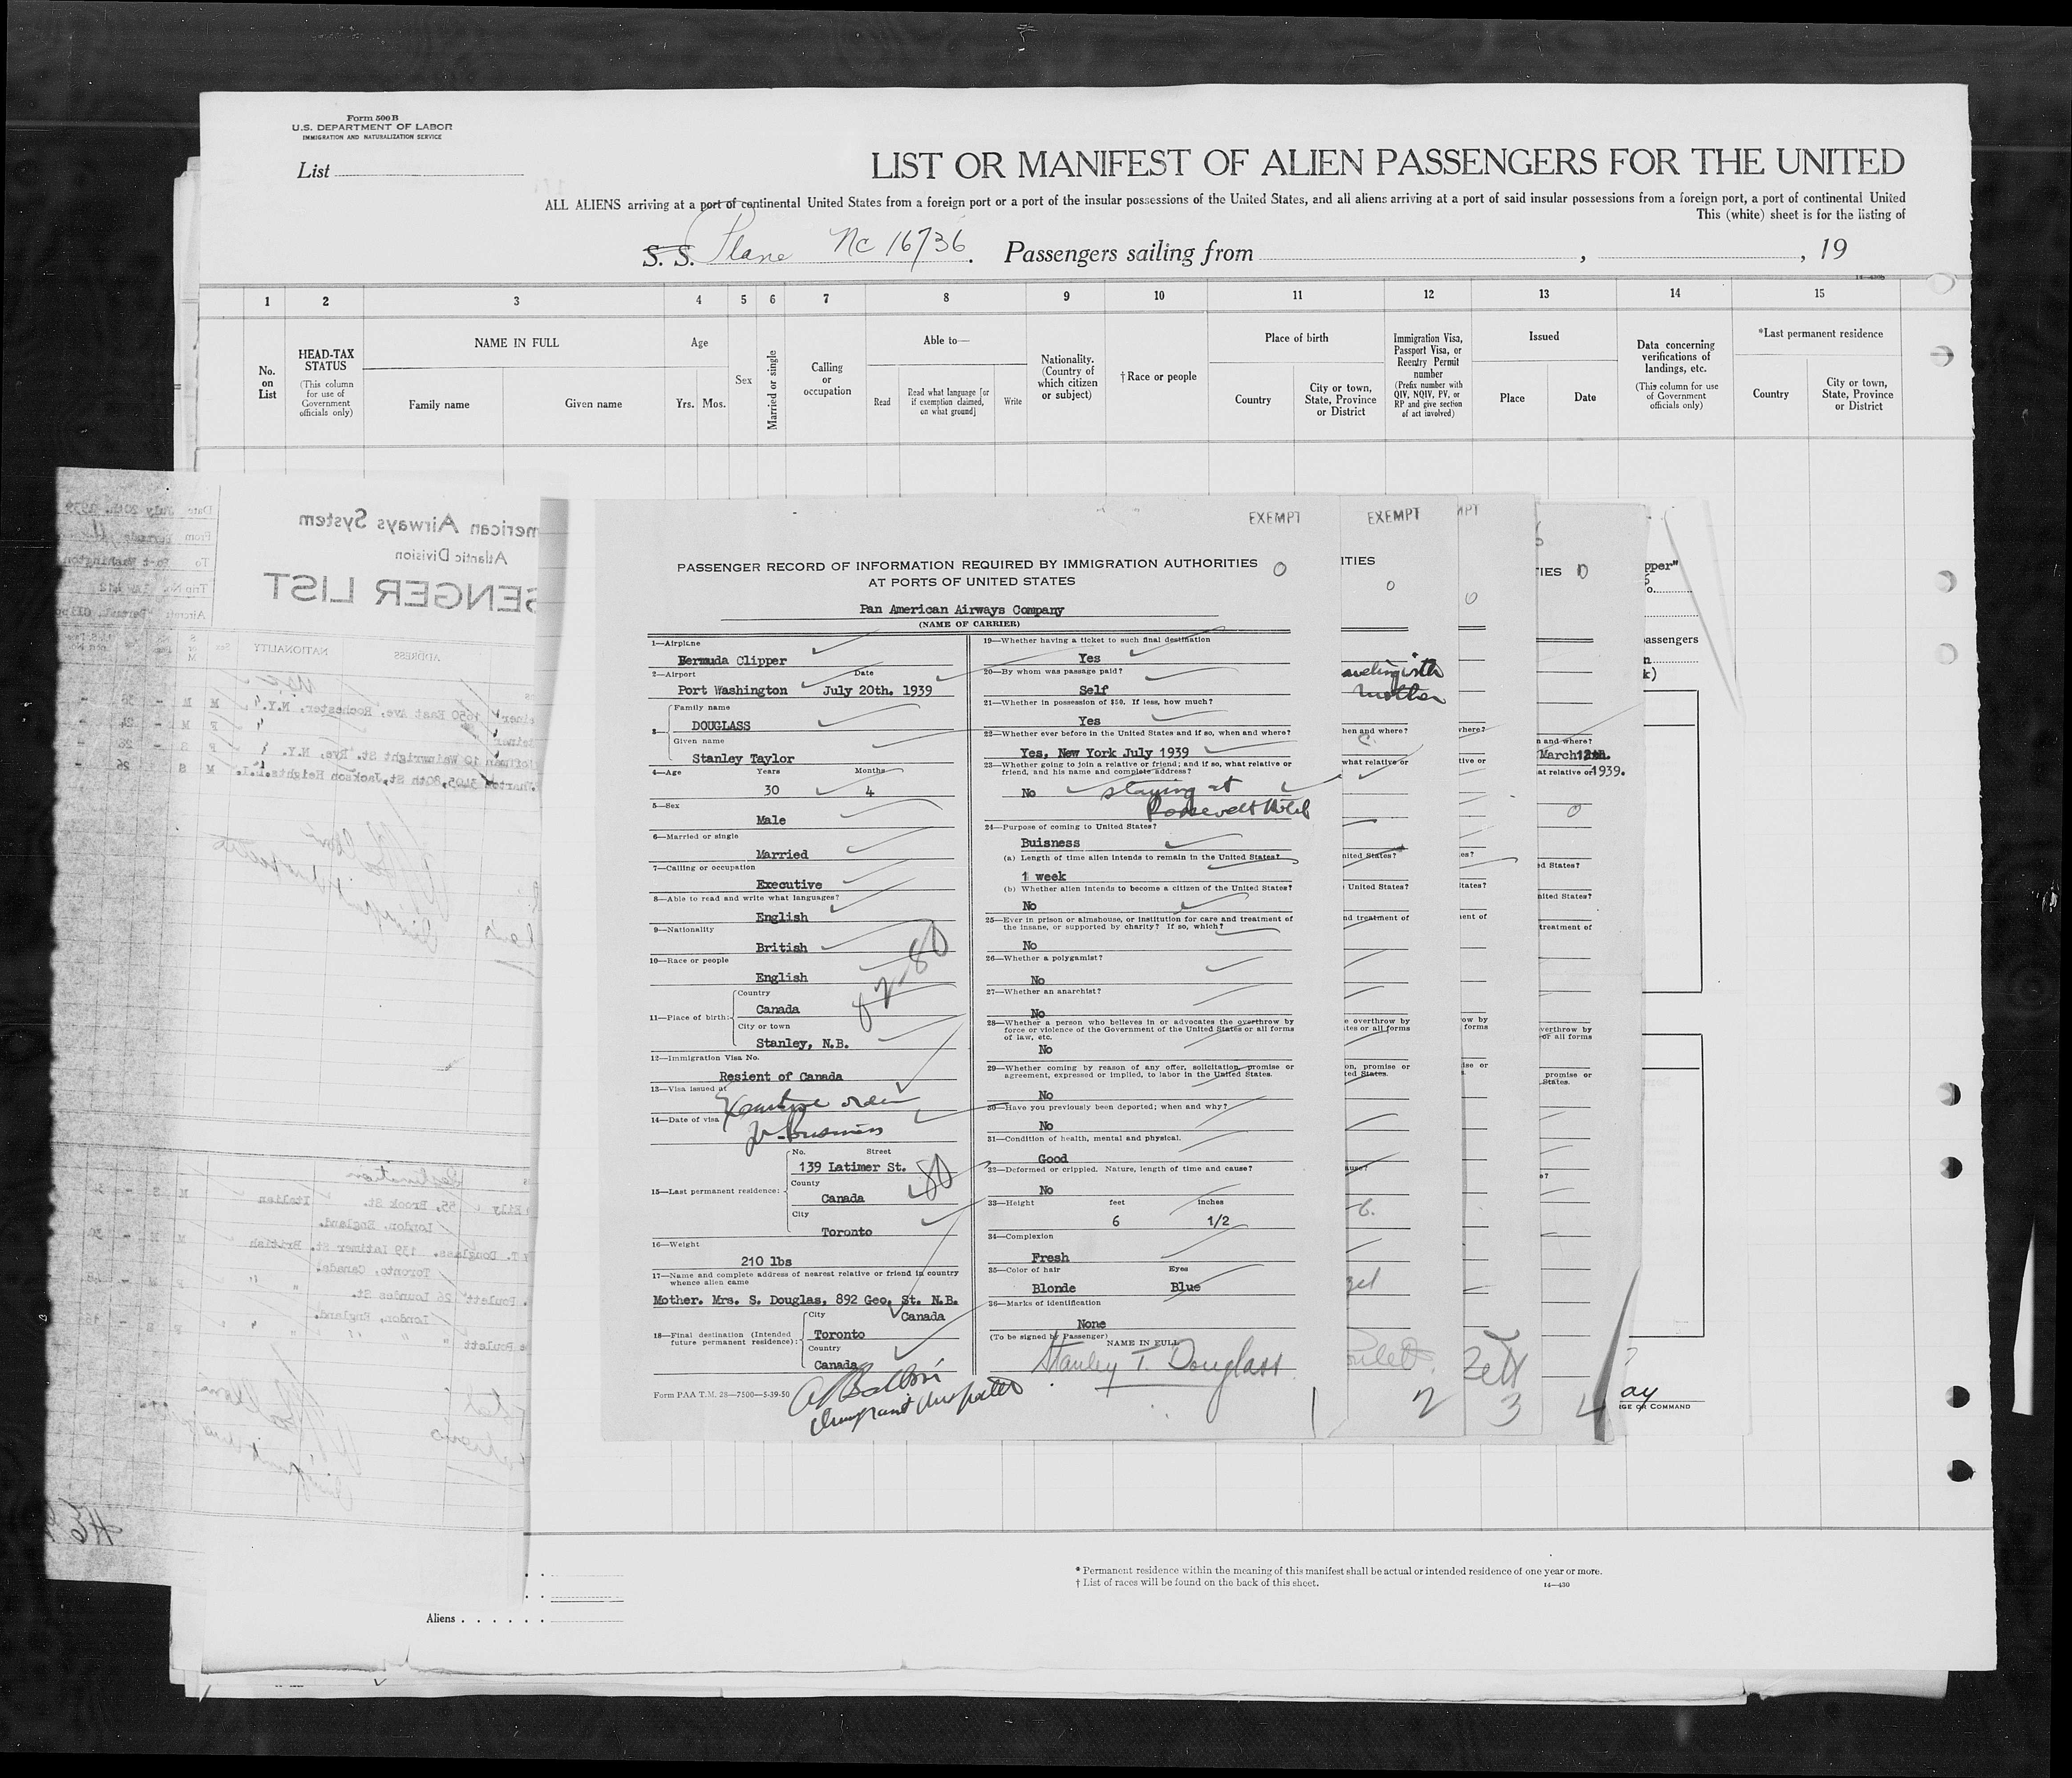 Form 500 B
U.S. DEPARTMENT OF LABOR
IMMIGRATION AND NATURALIZATION SERVICE
List
LIST OR MANIFEST OF ALIEN PASSENGERS FOR THE UNITED
ALL ALIENS arriving at a port of continental United States from a foreign port or a port of the insular possessions of the United States, and all aliens arriving at a port of said insular possessions from a foreign port, a port of continental United
This (white) sheet is for the listing of
S. S. Plane Nc 16736. Passengers sailing from , , 19
1 2 3 4 5 6 7 8 9 10 11 12 13 14 15
No. on List
HEAD-TAX STATUS
(This column for use of Government officials only)
NAME IN FULL
Family name Given name
Age
Yrs. Mos.
Sex
Married or single
Calling or occupation
Able to—
Read
Read what language [or if exemption claimed, on what ground]
Write
Nationality. (Country of which citizen or subject)
† Race or people
Place of birth
Country
City or town, State, Province or District
Immigration Visa, Passport Visa, or Reentry Permit number
(Prefix number with QIV, NQIV, PV, or RP and give section of act involved)
Issued
Place Date
Data concerning verifications of landings, etc.
(This column for use of Government officials only)
*Last permanent residence
Country
City or town, State, Province or District
American Airways System
Atlantic Division
SENGER LIST
Date July 20th. 1939
From
To Port Washington
Trip No.
Aircraft
ADDRESS NATIONALITY
1650 East Ave, Rochester, N.Y.
10 Wainwright St. Rye, N.Y.
80th St, Jackson Heights. L.I.
Destination
55, Brook St. Italian
London, England.
T. Douglass. 139 Latimer St. British
Toronto, Canada.
Poulett 26 Lowndes St.
London, England.
Poulett
EXEMPT
PASSENGER RECORD OF INFORMATION REQUIRED BY IMMIGRATION AUTHORITIES 0
AT PORTS OF UNITED STATES
Pan American Airways Company
(NAME OF CARRIER)
1—Airplane
Bermuda Clipper
2—Airport Date
Port Washington July 20th. 1939
3— Family name
DOUGLASS
Given name
Stanley Taylor
4—Age Years Months
30 4
5—Sex
Male
6—Married or single
Married
7—Calling or occupation
Executive
8—Able to read and write what languages?
English
9—Nationality
British
10—Race or people
English
11—Place of birth: Country
Canada
City or town
Stanley, N.B.
12—Immigration Visa No.
Resient of Canada
13—Visa issued at
Executive order
14—Date of visa
for business
15—Last permanent residence: No. Street
139 Latimer St.
County
Canada
City
Toronto
16—Weight
210 lbs
17—Name and complete address of nearest relative or friend in country
whence alien came
Mother. Mrs. S. Douglas, 892 Geo. St. N.B.
Canada
18—Final destination (Intended future permanent residence): City
Toronto
Country
Canada
Form PAA T.M. 28—7500—5-39-50
19—Whether having a ticket to such final destination
Yes
20—By whom was passage paid?
Self
21—Whether in possession of $50. If less, how much?
Yes
22—Whether ever before in the United States and if so, when and where?
Yes, New York July 1939
23—Whether going to join a relative or friend; and if so, what relative or
friend, and his name and complete address?
No staying at
Roosevelt Hotel
24—Purpose of coming to United States?
Buisness
(a) Length of time alien intends to remain in the United States?
1 week
(b) Whether alien intends to become a citizen of the United States?
No
25—Ever in prison or almshouse, or institution for care and treatment of
the insane, or supported by charity? If so, which?
No
26—Whether a polygamist?
No
27—Whether an anarchist?
No
28—Whether a person who believes in or advocates the overthrow by
force or violence of the Government of the United States or all forms
of law, etc.
No
29—Whether coming by reason of any offer, solicitation, promise or
agreement, expressed or implied, to labor in the United States.
No
30—Have you previously been deported; when and why?
No
31—Condition of health, mental and physical.
Good
32—Deformed or crippled. Nature, length of time and cause?
No
33—Height feet inches
6 1/2
34—Complexion
Fresh
35—Color of hair Eyes
Blonde Blue
36—Marks of identification
None
(To be signed by Passenger)
NAME IN FULL
Stanley T. Douglass
1
EXEMPT
ITIES
0
mother
hen and where?
what relative or
nited States?
United States?
nd treatment of
e overthrow by
tes or all forms
on, promise or
ted States.
ause?
2
MPT
0
where?
tive or
es?
States?
ent of
ow by
forms
ise or
3
TIES 0
n and where?
March 12th.
at relative or 1939.
0
ed States?
nited States?
treatment of
verthrow by
or all forms
promise or
States.
4
pper"
assengers
GE OR COMMAND
* Permanent residence within the meaning of this manifest shall be actual or intended residence of one year or more.
† List of races will be found on the back of this sheet.
14—430
Aliens . . . . . .